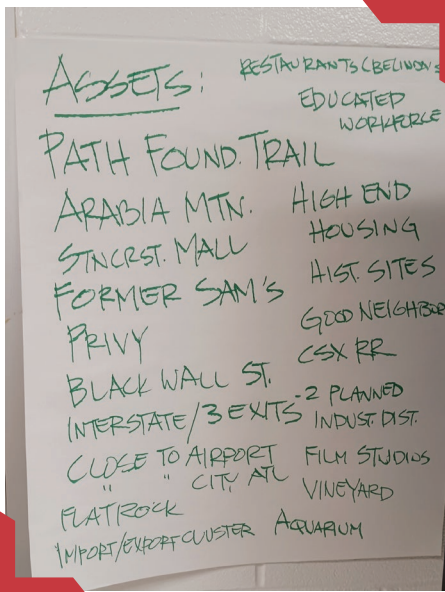 ASSETS:
PATH FOUND. TRAIL
ARABIA MTN.
STNCRST. MALL
FORMER SAM'S
PRIVY
BLACK WALL ST.
INTERSTATE/3 EXITS
CLOSE TO AIRPORT
" " CITY ATL
FLATROCK
IMPORT/EXPORT CLUSTER
RESTAURANTS
EDUCATED
WORKFORCE
HIGH END
HOUSING
HIST. SITES
GOOD NEIGHBOR
CSX RR
-2 PLANNED
INDUST. DIST.
FILM STUDIOS
VINEYARD
AQUARIUM